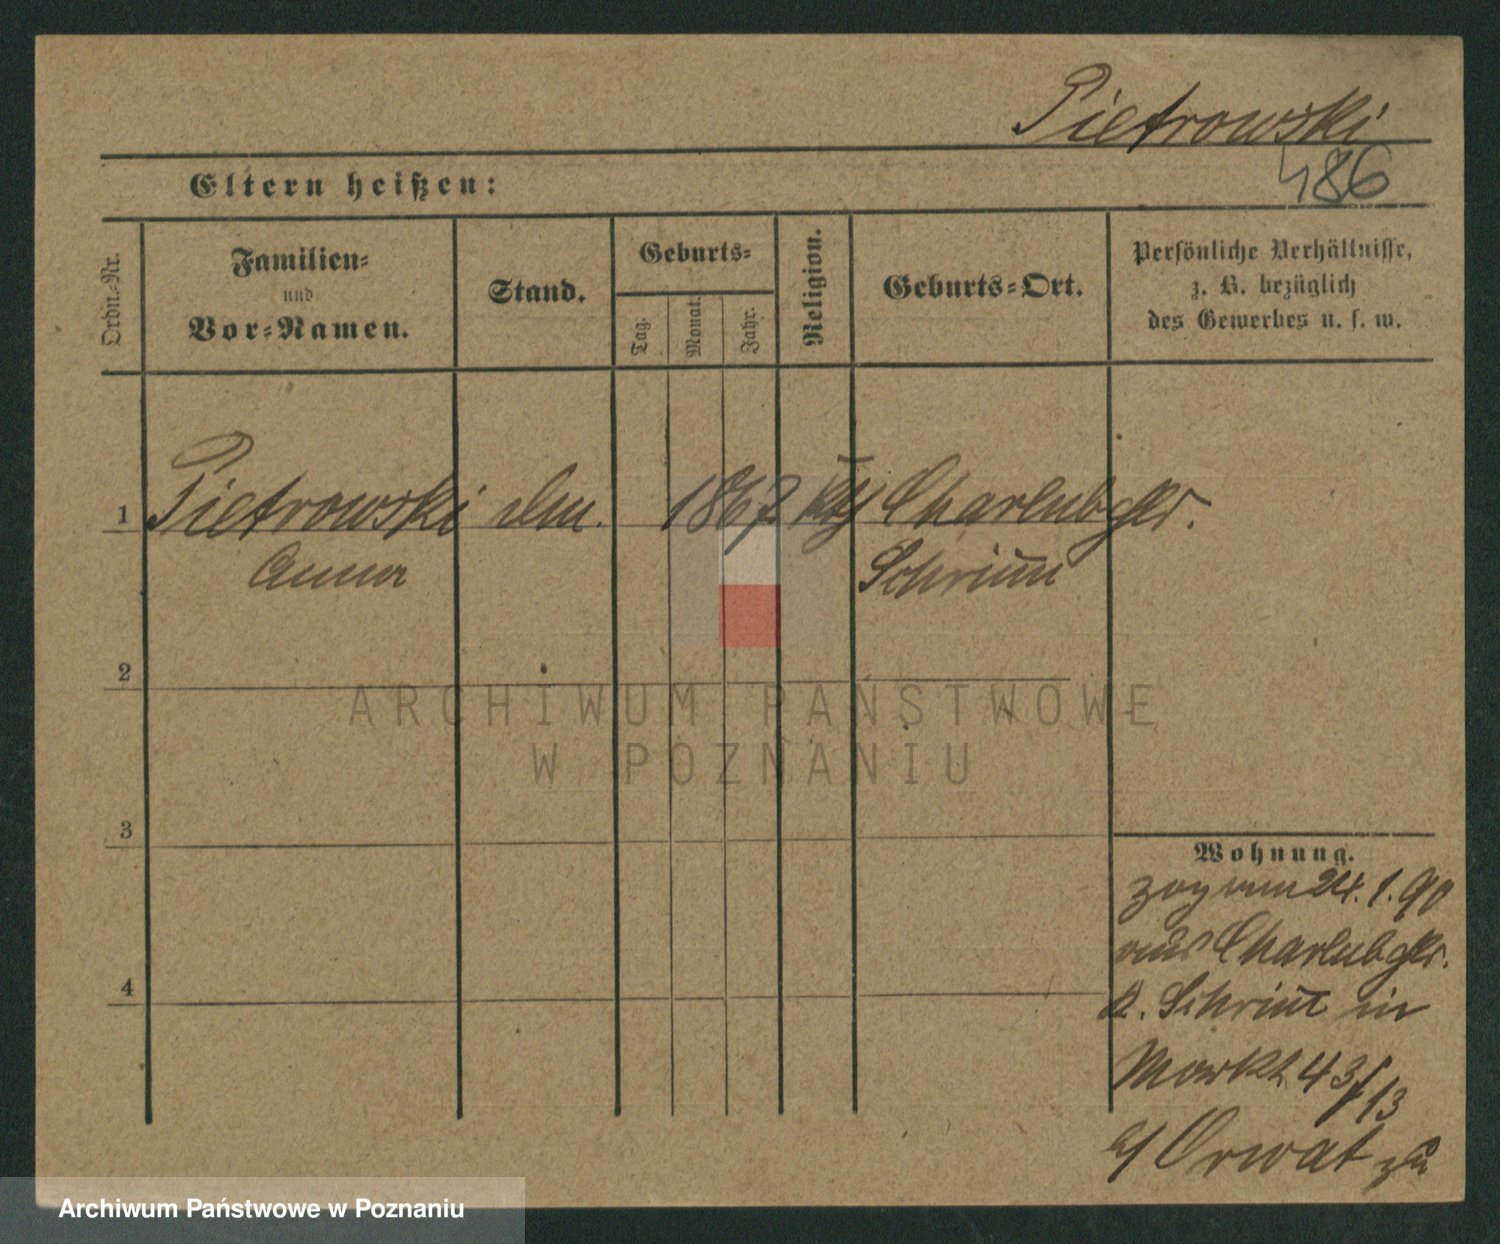 Pietrowski
486
Eltern heißen:
Ordn.-Nr.
Familien-
und
Vor-Namen.
Stand.
Geburts-
Tag.
Monat.
Jahr.
Religion.
Geburts-Ort.
Persönliche Verhältnisse,
z. B. bezüglich
des Gewerbes u. s. w.
1 Pietrowski 1867 kth Charlub
Anna Schrim̅
2
ARCHIWUM PAŃSTWOWE
W POZNANIU
3
Wohnung.
zog am 24.1.90
aus Charlub
4
K. Schrim̅ in
Markt 43/13
b/ Orwat zu
Archiwum Państwowe w Poznaniu